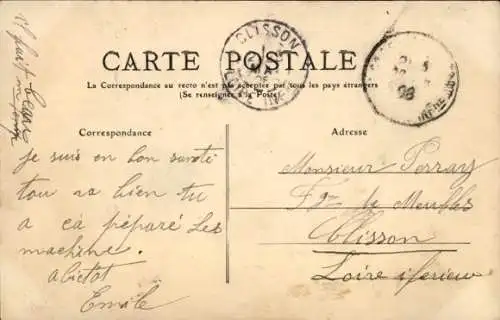 il fait beau
temp
CARTE POSTALE
La Correspondance au recto n'est pas acceptée par tous les pays étrangers
(Se renseigner à la Poste)
CLISSON
LOIRE INF
08
INFRE
Correspondance
Adresse
je suis en bon santé
tou va bien tu
a ca préparé les
machine.
abietot
Emile
Monsieur Perray
Fg de Meubles
Clisson
Loire iferieur